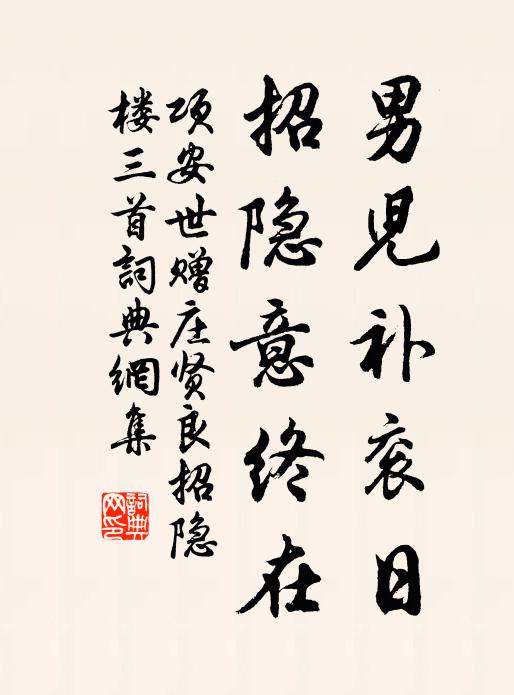 男児补衮日
招隐意终在
项安世赠庄贤良招隐
楼三首詞典網集
詞典
网印